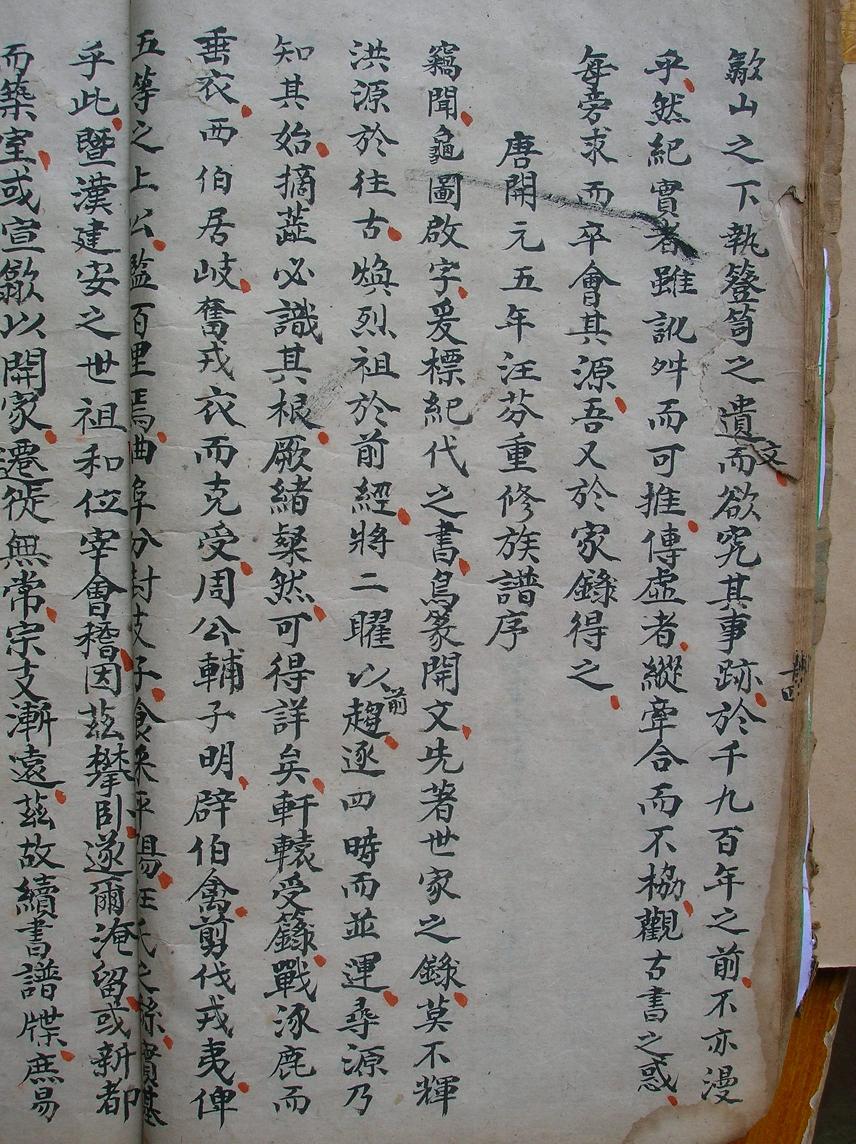 歙山之下執簦笥之遺文而欲究其事跡於千九百年之前不亦漫
乎然紀實者雖訛舛而可推傳虛者縱牽合而不協觀古書之惑
每旁求而卒會其源吾又於家錄得之
唐開元五年汪芬重修族譜序
竊聞龜圖啟字爰標紀代之書鳥篆開文先著世家之錄莫不輝
洪源於往古煥烈祖於前經將二曜以前趨逐四時而並運尋源乃
知其始摘蘂必識其根厥緒粲然可得詳矣軒轅受籙戰涿鹿而
垂衣西伯居岐奮戎衣而克受周公輔子明辟伯禽剪伐戎夷俾
五等之上公監百里焉曲阜分封支子食采平陽汪氏之系實基
乎此暨漢建安之世祖和位宰會稽因茲攀臥遂爾淹留或新都
而築室或宣歙以開家遷徙無常宗支漸遠茲故續書譜牒庶易